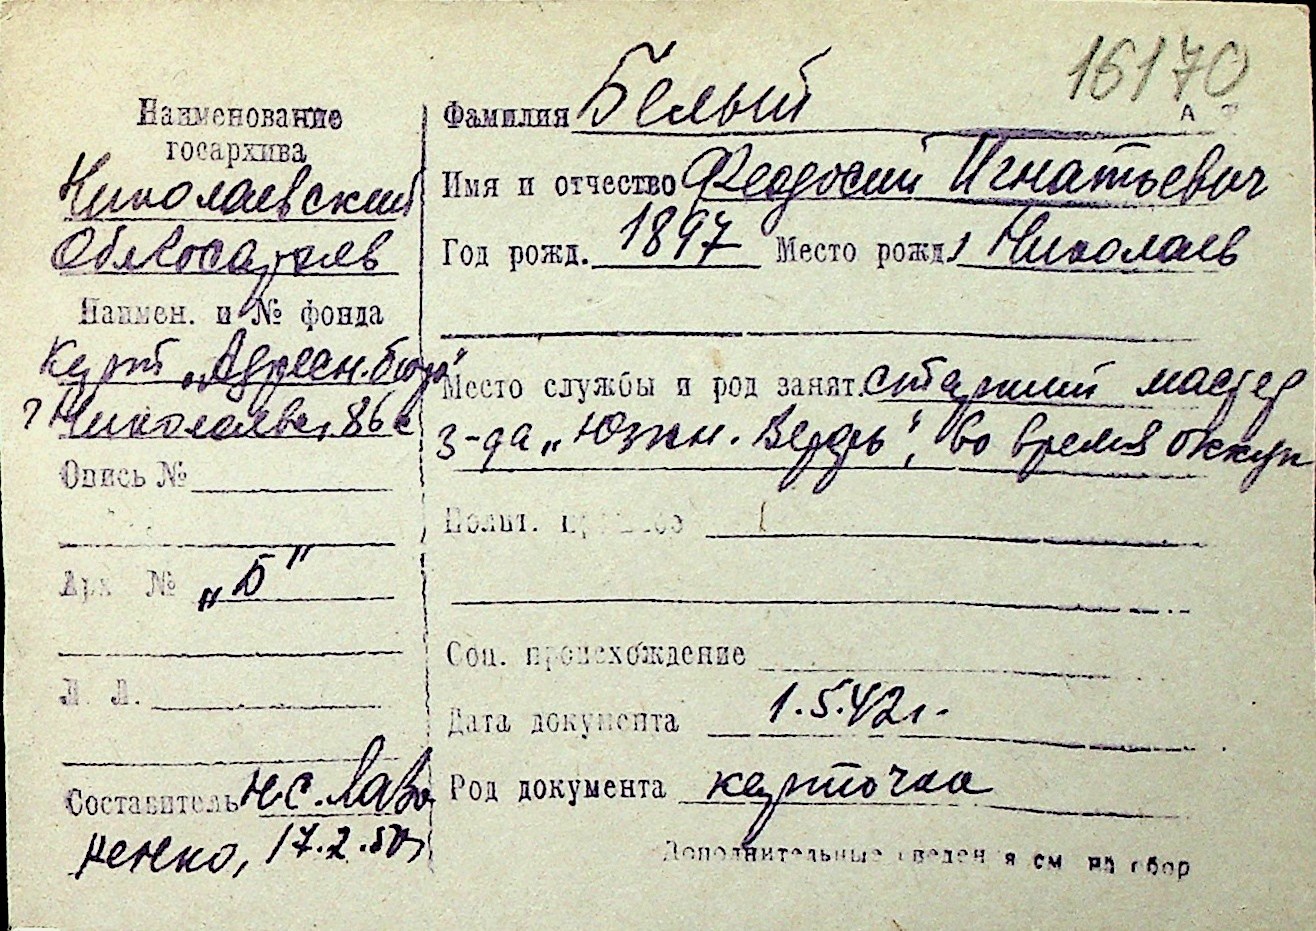 16170
Наименование
госархива
Николаевский
Облгосархив
Наимен. и № фонда
Карт. „Адресн. бюро"
г Николаева, 86с
Опись №
Арх №
„Б"
Л. Л.
Составитель Н.С. Лавр
ненко, 17.2.50г
Фамилия Белый
Имя и отчество Феодосий Игнатьевич
Год рожд. 1897 Место рожд. г Николаев
Место службы и род занят. старший мастер
з-да „Южн. Верфь", во время оккуп
Полит.
Соц. происхождение
Дата документа 1.5.42г.
Род документа карточка
Дополнительные сведения см на обор